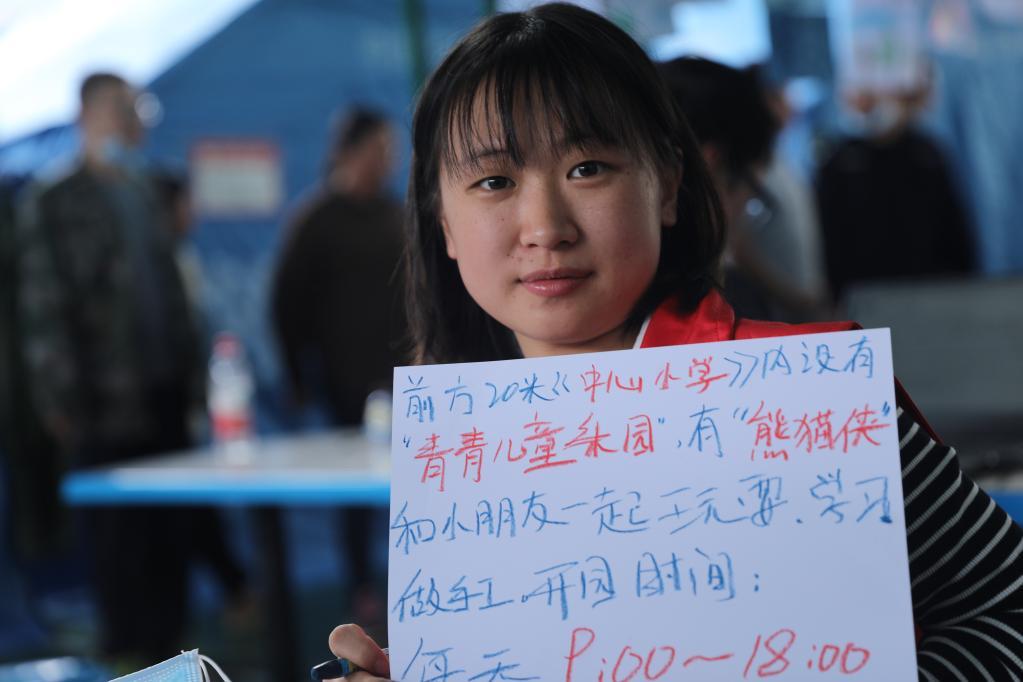 前方20米《中心小学》内设有
"青青儿童乐园",有"熊猫侠"
和小朋友一起玩耍、学习
做手工。开园时间：
每天 9:00～18:00